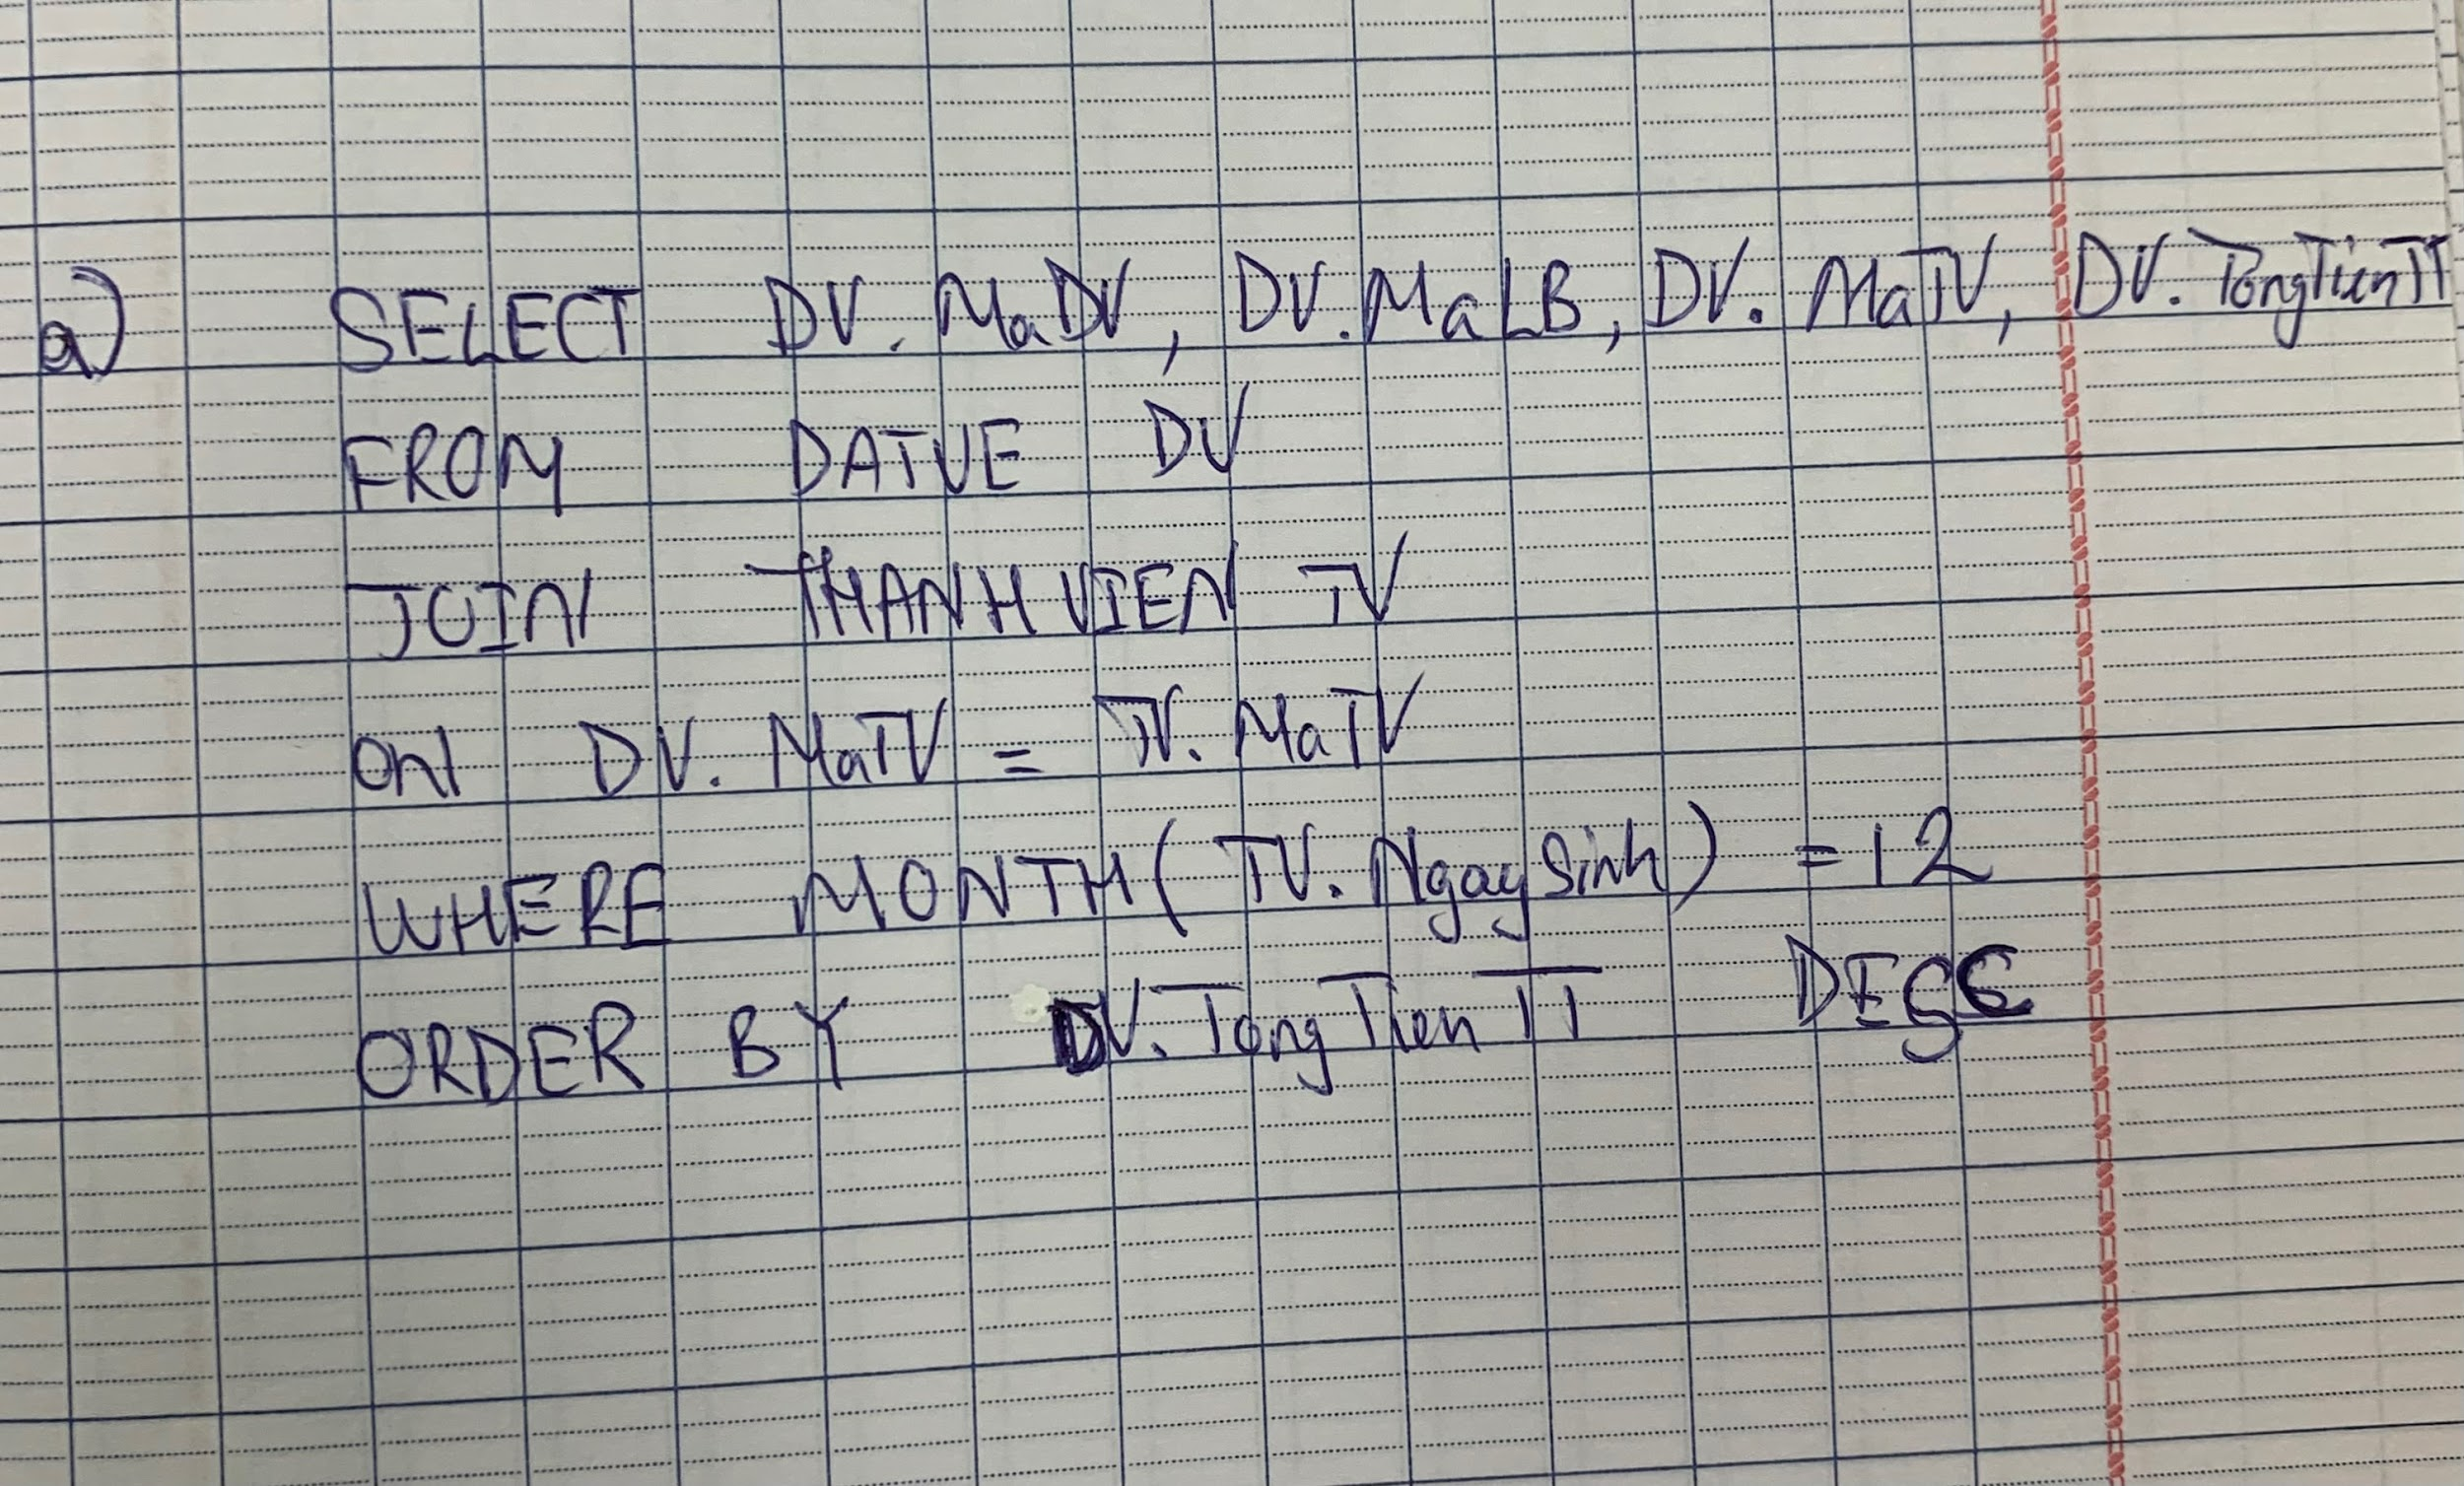 a) SELECT DV. MaDV, DV. MaLB, DV. MaTV, DV. TongTienTT
FROM DATVE DV
JOIN THANHVIEN TV
ON DV. MaTV = TV. MaTV
WHERE MONTH( TV. NgaySinh) = 12
ORDER BY DV. TongTienTT DESC